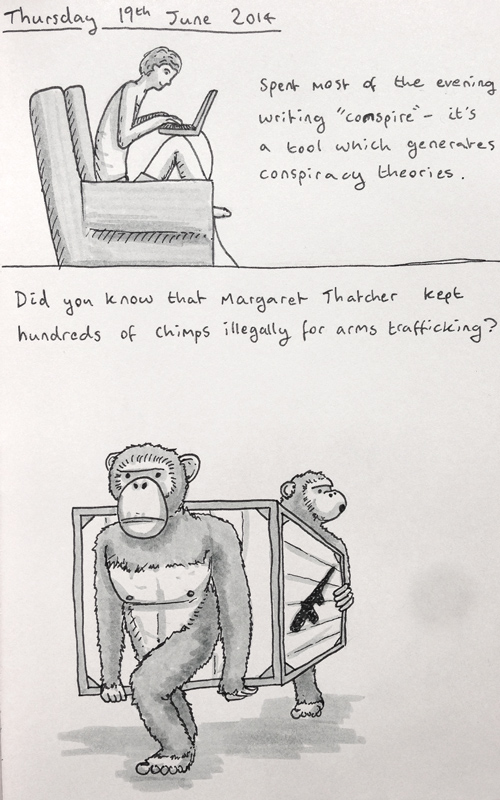 Thursday 19th June 2014
Spent most of the evening
writing "conspire" - it's
a tool which generates
conspiracy theories.
Did you know that Margaret Thatcher kept
hundreds of chimps illegally for arms trafficking?